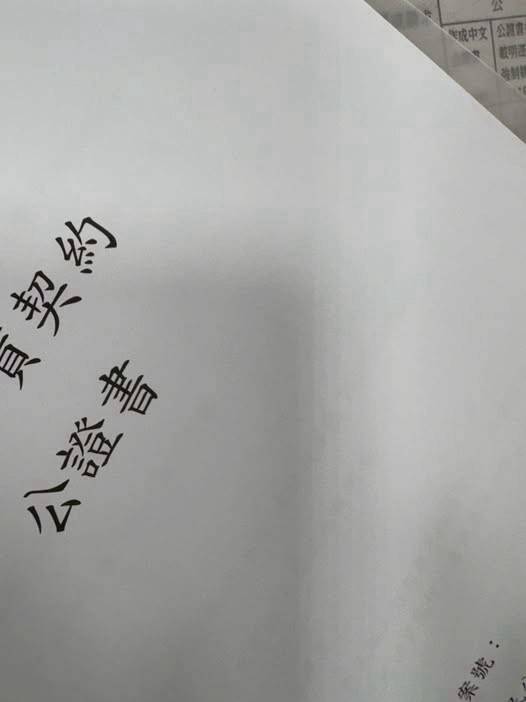 契約
公證書
案號：
公
作成中文
公證書
載明逕
強制執